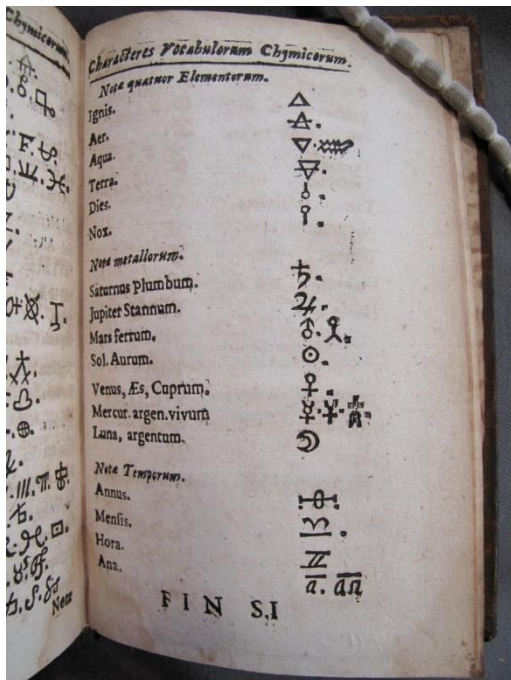 Chymicorum
F.
Nota
Characteres Vocabulorum Chymicorum.
Notæ quatuor Elementorum.
Ignis. 🜂
Aer. 🜁.
Aqua. 🜄.
Terra. 🜃.
Dies.
Nox.
Notæ metallorum.
Saturnus plumbum. ♄.
Jupiter Stannum. ♃.
Mars ferrum. ♂.
Sol. Aurum. ☉
Venus, Æs, Cuprum. ♀.
Mercur. argen. vivum ☿.
Luna, argentum. ☽
Notæ Temporum.
Annus.
Mensis.
Hora.
Ana. a. āā
FIN S.I